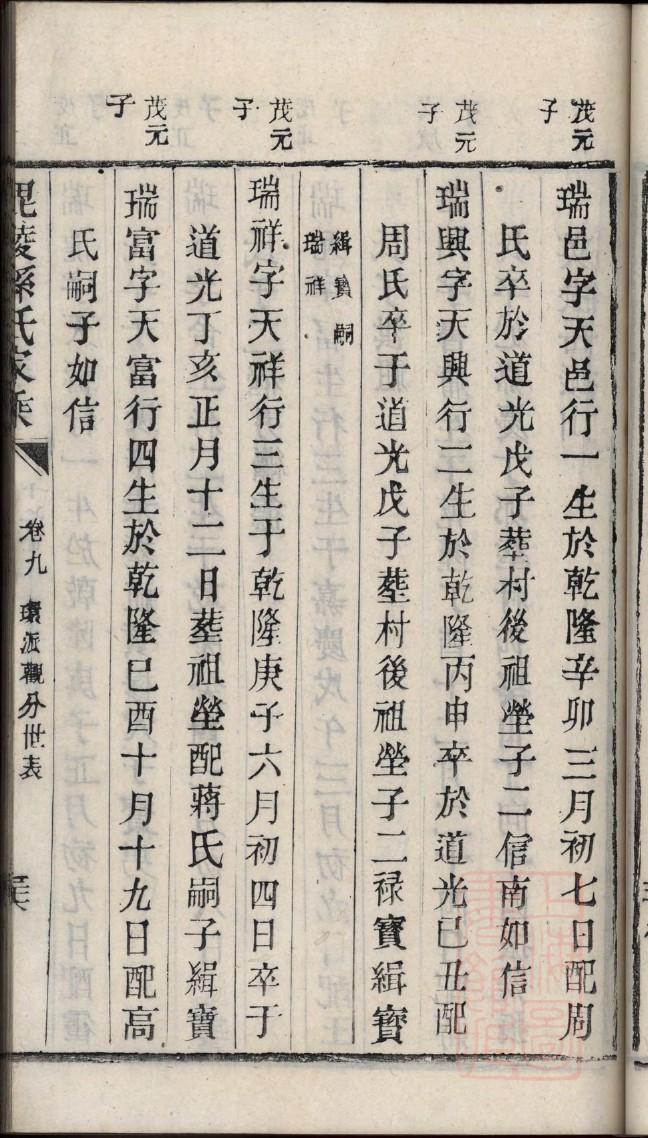 茂元子
瑞邑字天邑行一生於乾隆辛卯三月初七日配周
氏卒於道光戊子塟村後祖塋子二信南如信
茂元子
瑞興字天興行二生於乾隆丙申卒於道光己丑配
周氏卒于道光戊子塟村後祖塋子二禄寳緝寳
緝寳嗣
瑞祥
茂元子
瑞祥字天祥行三生于乾隆庚子六月初四日卒于
道光丁亥正月十二日塟祖塋配蔣氏嗣子緝寳
茂元子
瑞富字天富行四生於乾隆巳酉十月十九日配高
氏嗣子如信
毘陵孫氏家乘
卷九 環派觀分世表
三六